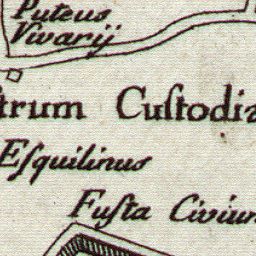 Puteus
Vivarij
ſtrum Cuſtodia
Eſquilinus
Fuſta Civium